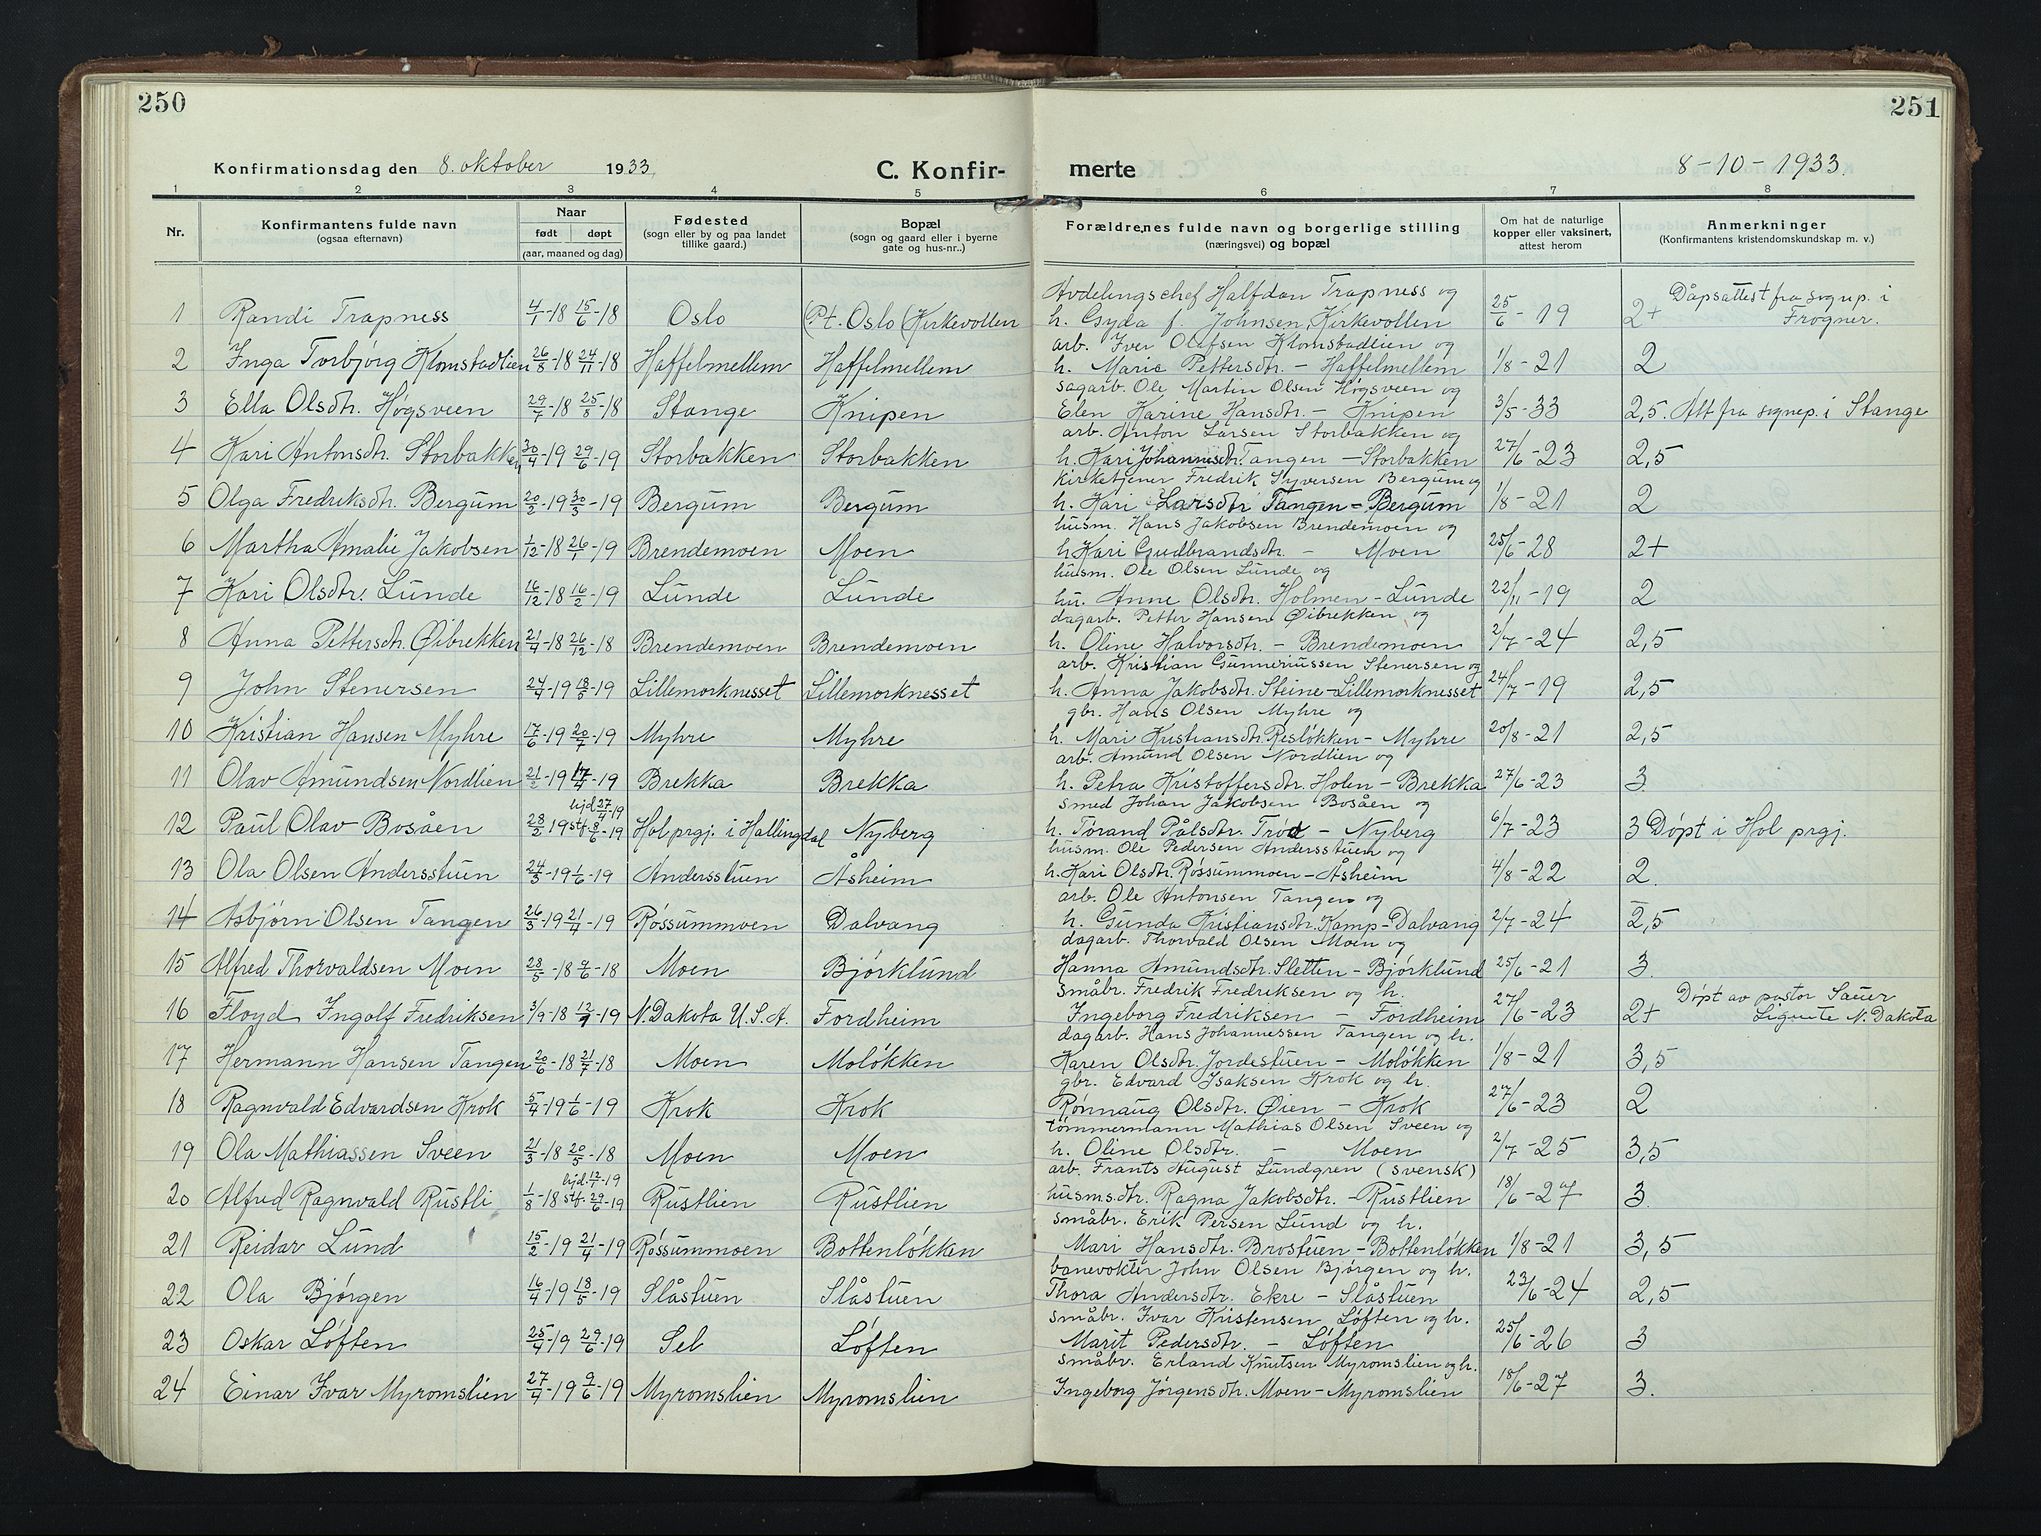 250
251
Konfirmationsdag den 8. oktober 1933
C. Konfir-
merte
8-10-1933.
1 2 3 4 5 6 7 8
Nr. Konfirmantens fulde navn (ogsaa efternavn) Naar født døpt (aar, maaned og dag) Fødested (sogn eller by og paa landet tillike gaard.) Bopæl (sogn og gaard eller i byerne gate og hus-nr..) Forældrenes fulde navn og borgerlige stilling (næringsvei) og bopæl Om hat de naturlige kopper eller vaksinert, attest herom Anmerkninger (Konfirmantens kristendomskundskap m. v.)
Avdelingschef Halfdan Trapness og Dåpsattest fra sognep. i
1 Randi Trapness 4/1-18 15/6-18 Oslo (Pt. Oslo (Kirkevollen h. Gyda f. Johnsen, Kirkevollen 25/6-19 2+ Frogner.
arb. Iver Olufsen Klomstadlien og
2 Inga Torbjørg Klomstadlien 26/8-18 24/11-18 Haffelmellem Haffelmellem h. Marie Pettersdtr. - Haffelmellem 1/8-21 2
sagarb. Ole Martin Olsen Høgsveen og
3 Ella Olsdtr. Høgsveen 29/7-18 25/8-18 Stange Knipen Elen Karine Hansdtr. - Knipen 3/5-33 2,5. Att fra sognep. i Stange
arb. Anton Larsen Storbakken og
4 Kari Antonsdtr. Storbakken 30/4-19 29/6-19 Storbakken Storbakken h. Kari Johannisdtr. Tangen - Storbakken 27/6-23 2,5
kirketjener Fredrik Syversen Bergum og
5 Olga Fredriksdtr. Bergum 20/2-19 30/3-19 Bergum Bergum h. Kari Larsdtr Tangen - Bergum 1/8-21 2
husm. Hans Jakobsen Brendemoen og
6 Martha Amalie Jakobsen 1/12-18 26/1-19 Brendemoen Moen h. Kari Gudbrandsdtr. - Moen 25/6-28 2+
husm. Ole Olsen Lunde og
7 Kari Olsdtr. Lunde 16/12-18 16/2-19 Lunde Lunde hu. Anne Olsdtr. Holmen - Lunde 22/11-19 2
dagarb. Petter Hansen Øibrekken og
8 Anna Pettersdtr. Øibrekken 21/4-18 26/12-18 Brendemoen Brendemoen h. Oline Halvorsdtr. - Brendemoen 2/7-24 2,5
arb. Kristian Gunneriussen Stenersen og
9 John Stenersen 24/4-19 18/5-19 Lillemorknesset Lillemorknesset h. Anna Jakobsdtr. Steine - Lillemorknesset 24/7-19 2,5
gbr. Hans Olsen Myhre og
10 Kristian Hansen Myhre 17/6-19 20/7-19 Myhre Myhre h. Mari Kristiansdtr. Resløkken - Myhre 20/8-21 2,5
arb. Amund Olsen Nordlien og
11 Olav Amundsen Nordlien 21/2-19 17/4-19 Brekka Brekka h. Petra Kristoffersdtr. Holen - Brekka 27/6-23 3
hjd. 27/4-19 smed Johan Jakobsen Bosåen og
12 Paul Olav Bosåen 28/2-19 stf. 8/6-19 Hol prgj. i Hallingdal Nyberg h. Torand Pålsdtr. Trød - Nyberg 6/7-23 3 Døpt i Hol prgj.
husm. Ole Pedersen Andersstuen og
13 Ola Olsen Andersstuen 24/3-19 1/6-19 Andersstuen Åsheim h. Kari Olsdtr. Røssummoen - Åsheim 4/8-22 2.
arb. Ole Antonsen Tangen og
14 Asbjørn Olsen Tangen 26/3-19 21/4-19 Røssummoen Dalvang h. Gunda Kristiansdtr. Kamp - Dalvang 2/7-24 2,5
dagarb. Thorvald Olsen Moen og
15 Alfred Thorvaldsen Moen 28/5-18 9/6-18 Moen Bjørklund Hanna Amundsdtr. Sletten - Bjørklund 25/6-21 3.
småbr. Fredrik Fredriksen og h. Døpt av pastor Sauer
16 Floyd Ingolf Fredriksen 3/9-18 12/9-19 N. Dakota U.S.A. Fordheim Ingeborg Fredriksen - Fordheim 27/6-23 2+ Lignite N. Dakota
dagarb. Hans Johannessen Tangen og h.
17 Hermann Hansen Tangen 20/6-18 21/7-18 Moen Moløkken Karen Olsdtr. Jordestuen - Moløkken 1/8-21 3,5
gbr. Edvard Isaksen Krok og h.
18 Ragnvald Edvardsen Krok 5/4-19 1/6-19 Krok Krok Rønnaug Olsdtr. Øien - Krok 27/6-23 2
tømmermann Mathias Olsen Sveen og
19 Ola Mathiassen Sveen 21/3-18 20/5-18 Moen Moen h. Oline Olsdtr. - Moen 2/7-25 3,5
hjd. 12/7-19 arb. Frants August Lundgren (svensk)
20 Alfred Ragnvald Rustli 1/8-18 stf. 29/6-19 Rustlien Rustlien husmsdtr. Ragna Jakobsdtr. - Rustlien 18/6-27 3.
småbr. Erik Persen Lund og h.
21 Reidar Lund 15/2-19 21/4-19 Røssummoen Bottenløkken Mari Hansdtr. Brostuen - Bottenløkken 1/8-21 3,5
banevokter John Olsen Bjørgen og h.
22 Ola Bjørgen 16/4-19 18/5-19 Slåstuen Slåstuen Thora Andersdtr. Ekre - Slåstuen 23/6-24 2,5
småbr. Ivar Kristensen Løften og h.
23 Oskar Løften 25/4-19 29/6-19 Sel Løften Marit Pedersdtr. - Løften 25/6-26 3
småbr. Erland Knutsen Myromslien og h.
24 Einar Ivar Myromslien 27/4-19 9/6-19 Myromslien Myromslien Ingeborg Jørgensdtr. Moen - Myromslien 18/6-27 3.